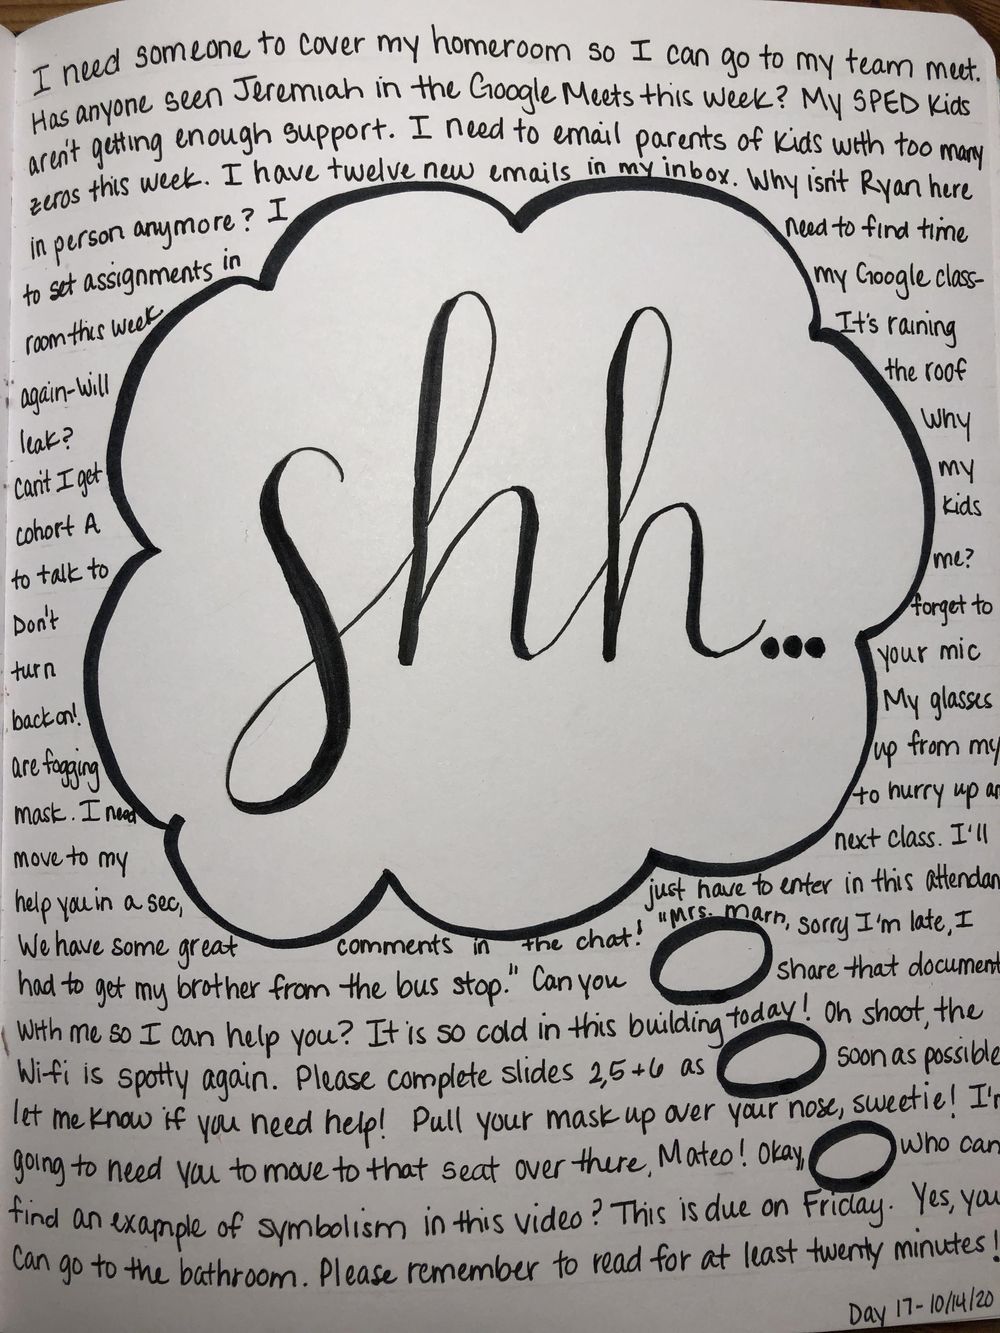 I need someone to cover my homeroom so I can go to my team meet.
Has anyone seen Jeremiah in the Google Meets this week? My SPED kids
aren't getting enough support. I need to email parents of kids with too many
zeros this week. I have twelve new emails in my inbox. Why isn't Ryan here
in person anymore? I need to find time
to set assignments in my Google class-
room this week It's raining
again-will the roof
leak? Why
can't I get my
cohort A kids
to talk to me?
Don't forget to
turn your mic
back on! My glasses
are fogging up from my
mask. I need to hurry up an
move to my next class. I'll
help you in a sec, just have to enter in this attendan
We have some great comments in the chat! "Mrs. Marn, sorry I'm late, I
had to get my brother from the bus stop." Can you share that document
with me so I can help you? It is so cold in this building today! Oh shoot, the
Wi-fi is spotty again. Please complete slides 2,5+6 as soon as possible
let me know if you need help! Pull your mask up over your nose, sweetie! I'm
going to need you to move to that seat over there, Mateo! Okay, who can
find an example of symbolism in this video? This is due on Friday. Yes, you
can go to the bathroom. Please remember to read for at least twenty minutes!
shh...
Day 17-10/14/20